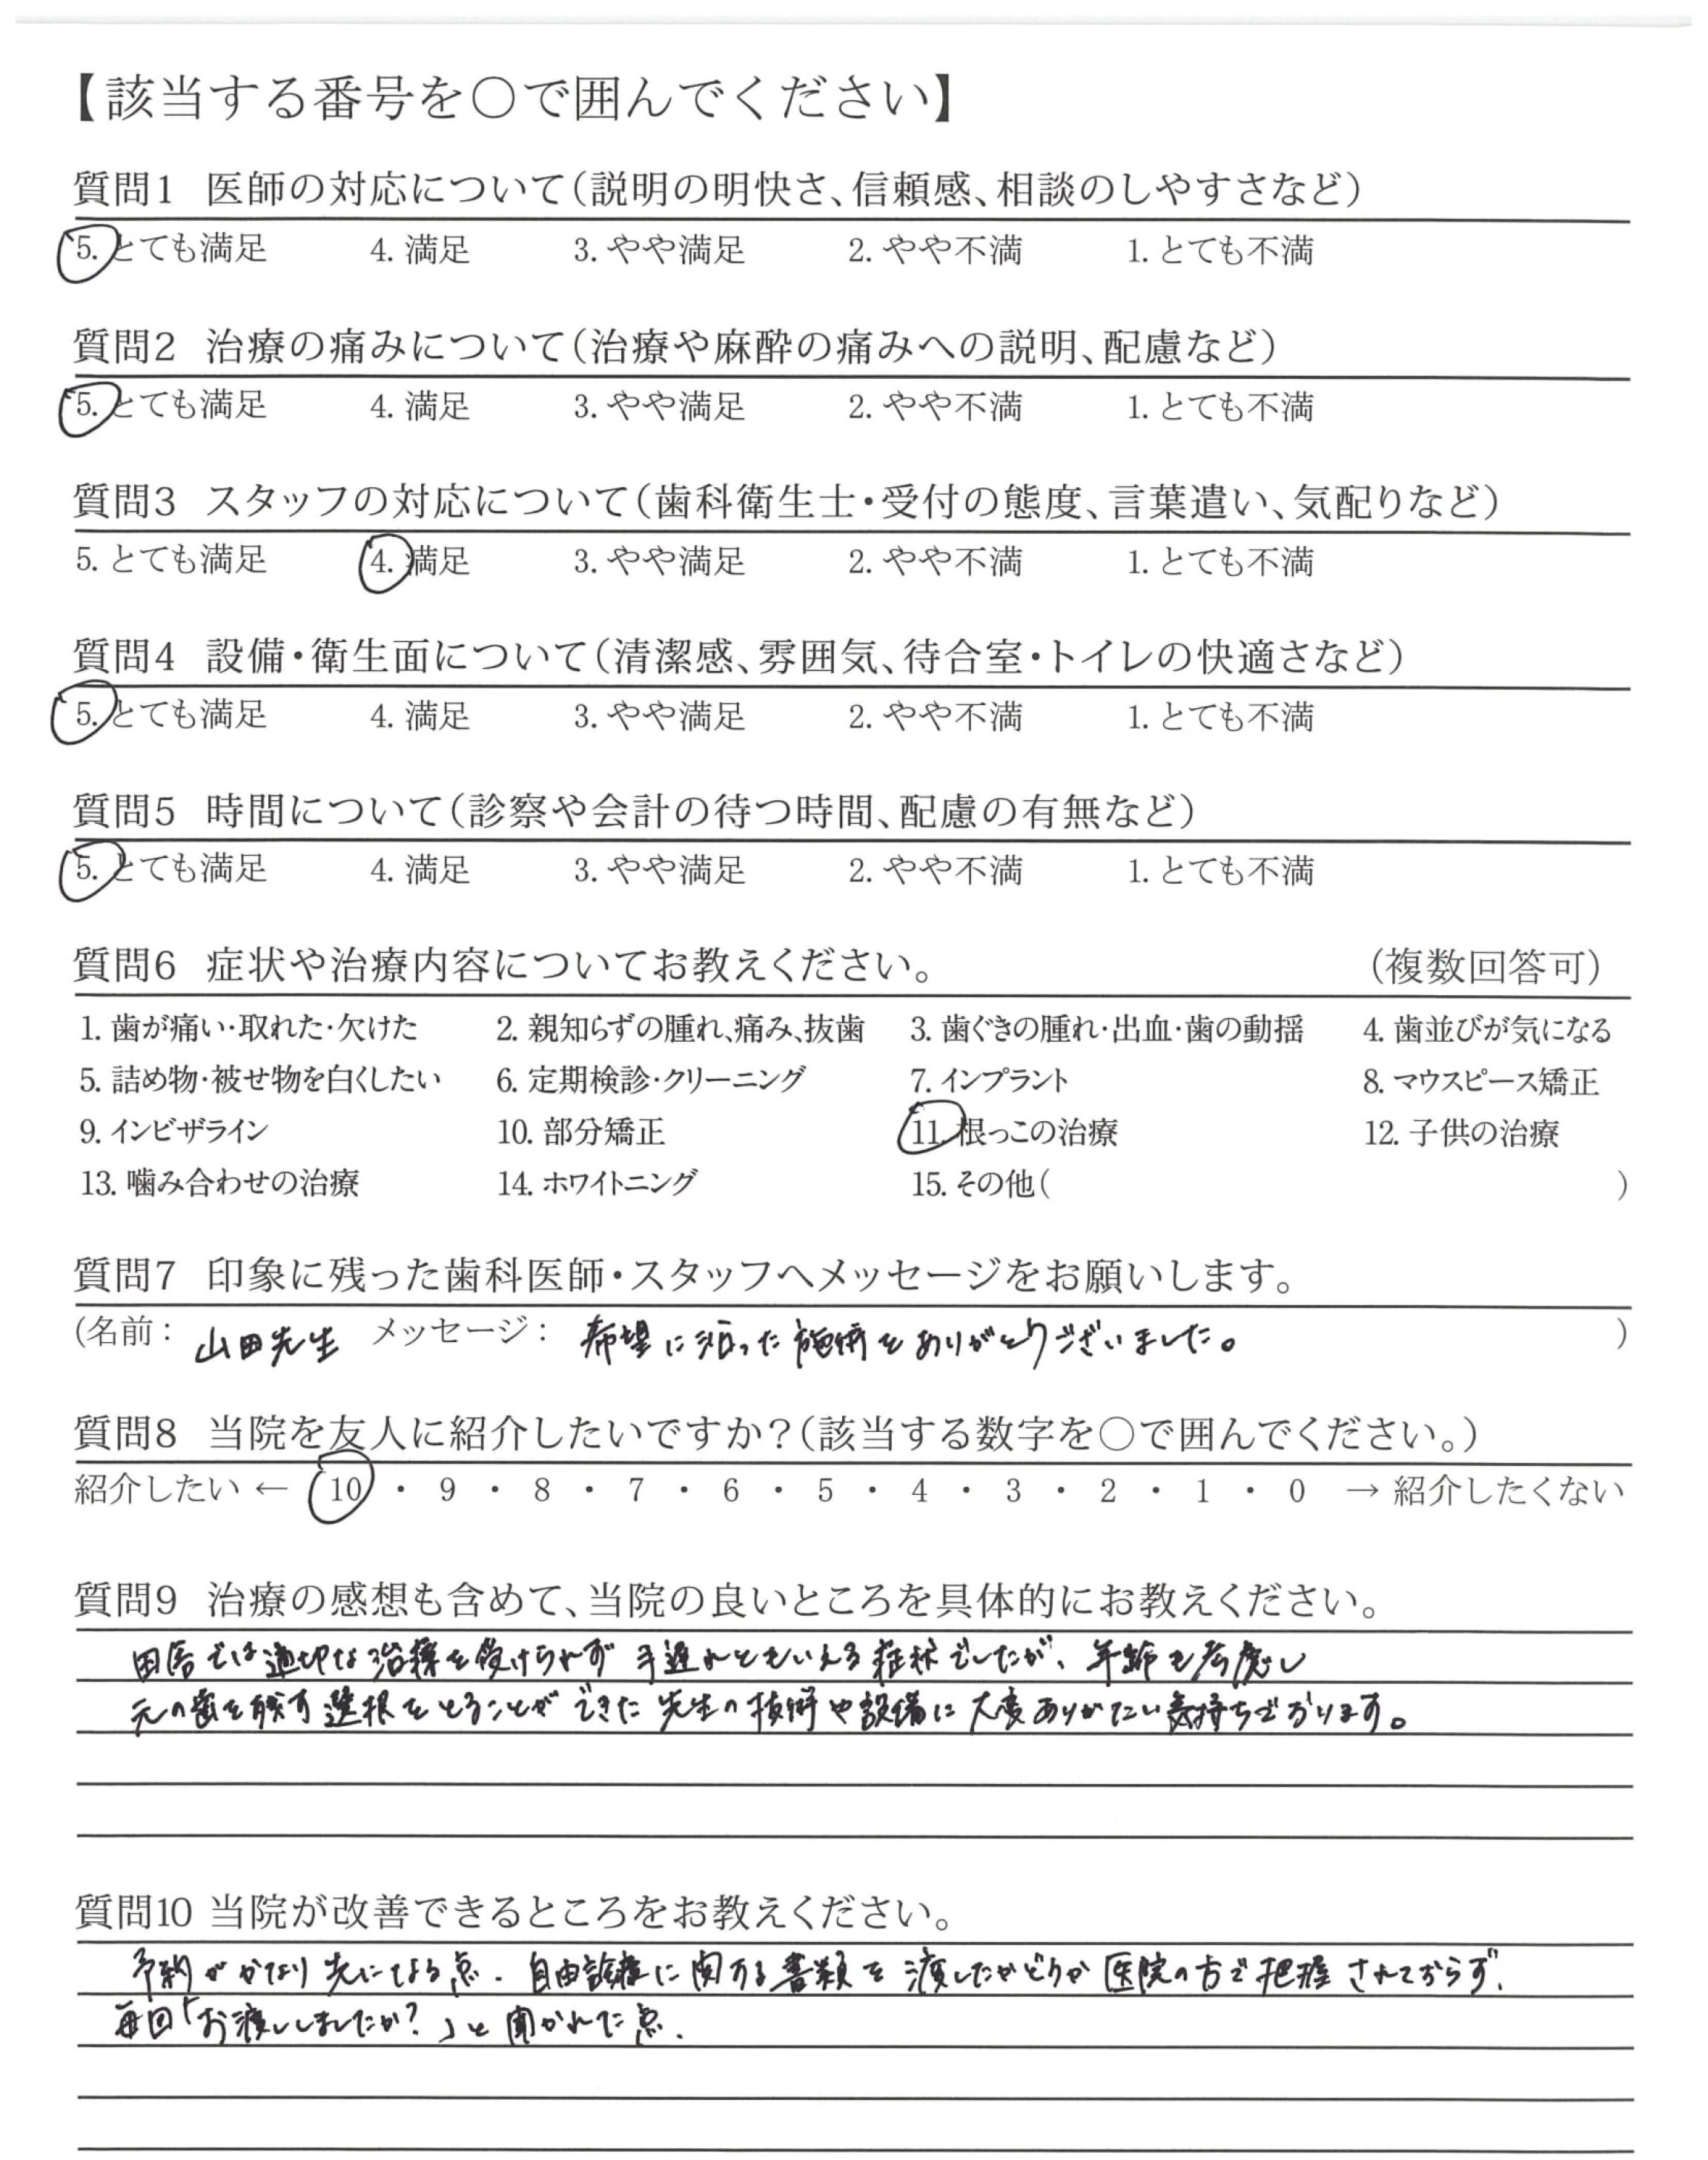 【該当する番号を○で囲んでください】
質問1 医師の対応について(説明の明快さ、信頼感、相談のしやすさなど)
5. とても満足 4. 満足 3. やや満足 2. やや不満 1. とても不満
質問2 治療の痛みについて(治療や麻酔の痛みへの説明、配慮など)
5. とても満足 4. 満足 3. やや満足 2. やや不満 1. とても不満
質問3 スタッフの対応について(歯科衛生士・受付の態度、言葉遣い、気配りなど)
5. とても満足 4. 満足 3. やや満足 2. やや不満 1. とても不満
質問4 設備・衛生面について(清潔感、雰囲気、待合室・トイレの快適さなど)
5. とても満足 4. 満足 3. やや満足 2. やや不満 1. とても不満
質問5 時間について(診察や会計の待つ時間、配慮の有無など)
5. とても満足 4. 満足 3. やや満足 2. やや不満 1. とても不満
質問6 症状や治療内容についてお教えください。 (複数回答可)
1. 歯が痛い・取れた・欠けた 2. 親知らずの腫れ、痛み、抜歯 3. 歯ぐきの腫れ・出血・歯の動揺 4. 歯並びが気になる
5. 詰め物・被せ物を白くしたい 6. 定期検診・クリーニング 7. インプラント 8. マウスピース矯正
9. インビザライン 10. 部分矯正 11. 根っこの治療 12. 子供の治療
13. 噛み合わせの治療 14. ホワイトニング 15. その他( )
質問7 印象に残った歯科医師・スタッフへメッセージをお願いします。
(名前: 山田先生 メッセージ: 希望に沿った施術をありがとうございました。 )
質問8 当院を友人に紹介したいですか?(該当する数字を○で囲んでください。)
紹介したい ← 10 ・ 9 ・ 8 ・ 7 ・ 6 ・ 5 ・ 4 ・ 3 ・ 2 ・ 1 ・ 0 → 紹介したくない
質問9 治療の感想も含めて、当院の良いところを具体的にお教えください。
田舎では適切な治療を受けられず 手遅れともいえる症状でしたが、年齢を考慮し
元の歯を残す選択をとることができた 先生の技術や設備に 大変ありがたい気持ちでおります。
質問10 当院が改善できるところをお教えください。
予約がかなり先になる点. 自由診療に関する書類を渡したかどうか医院の方で把握されておらず、
毎回「お渡ししましたか?」と聞かれた点.